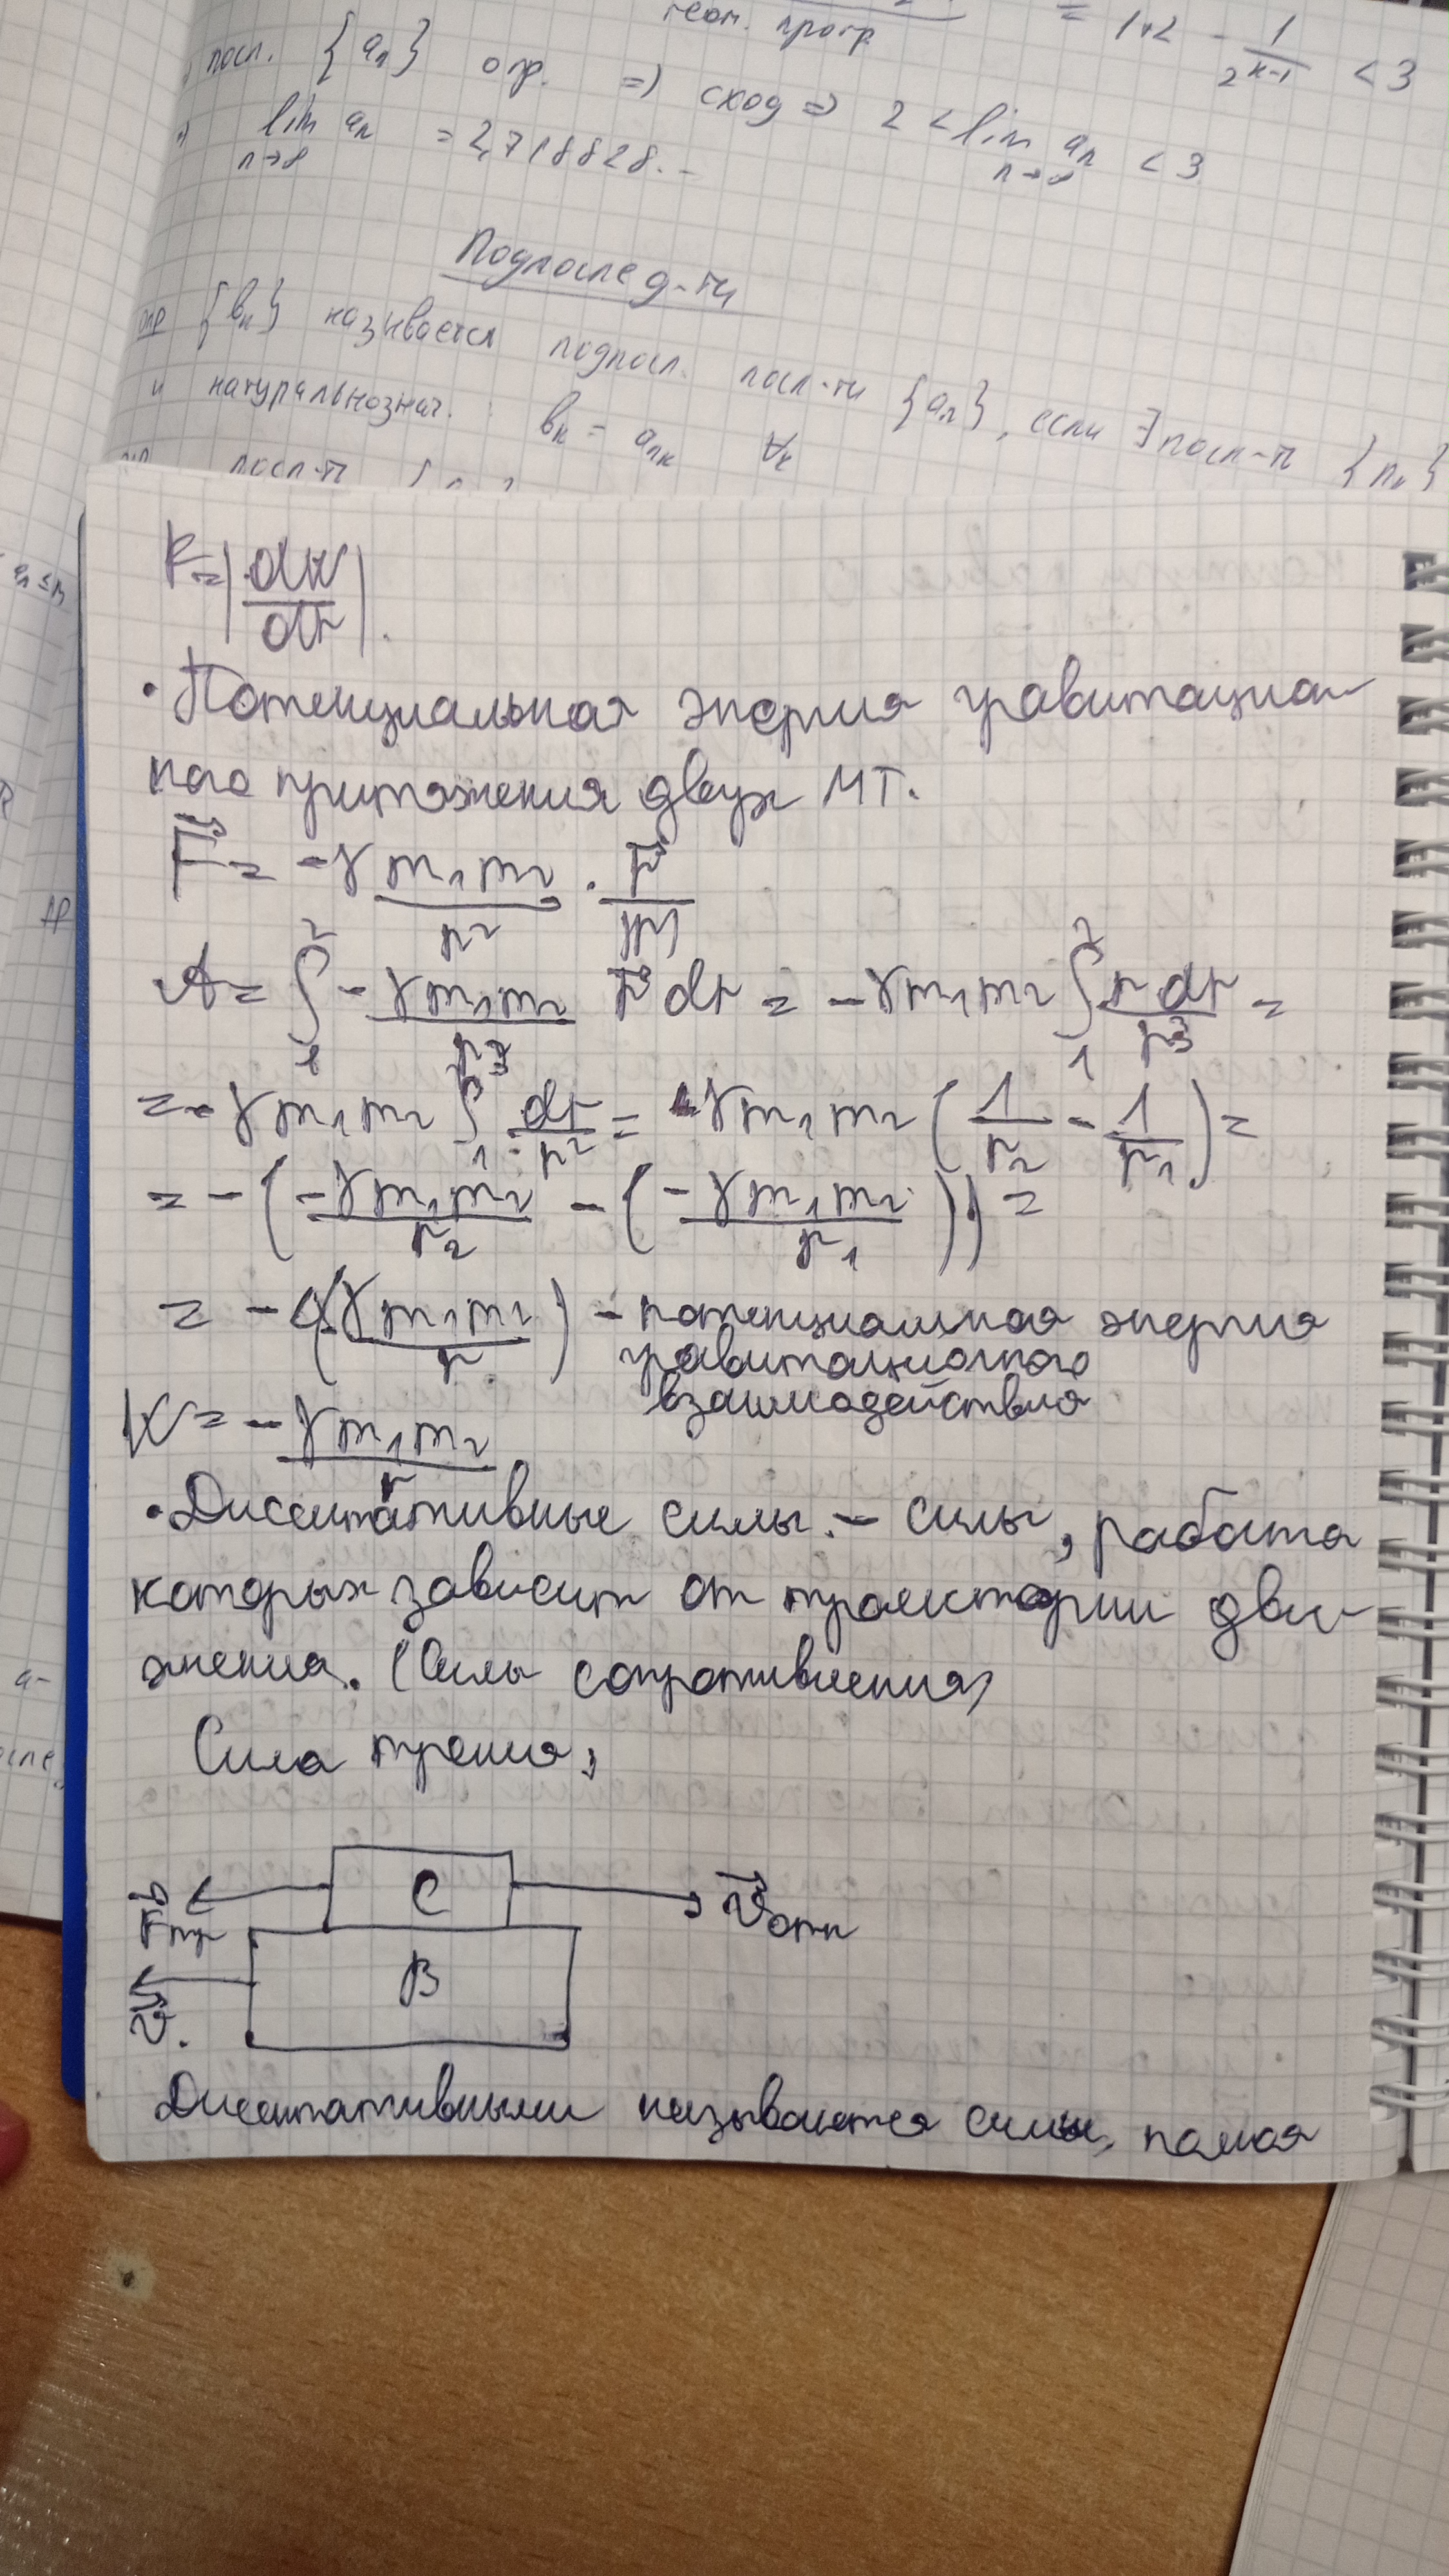 геом. прогр. = 1+2 - 1/2^(k-1) < 3
посл. {aₙ} огр. ⇒ сход ⇒ 2 < lim aₙ < 3
n→∞
lim aₙ = 2,718828...
n→∞
Подпослед-ти
опр {bₖ} называется подпосл. посл-ти {aₙ}, если ∃ посл-ть {nₖ}
и натуральнознач. : bₖ = aₙₖ ∀k
посл-ть
F = |dW/dr|.
• Потенциальная энергия гравитацион
ного притяжения двух МТ.
F⃗ = -γ m₁m₂/r² · r⃗/|r⃗|
A = ∫₁² - γm₁m₂/r³ r⃗ dr = -γm₁m₂ ∫₁² r dr/r³ =
= -γm₁m₂ ∫₁² dr/r² = γm₁m₂ (1/r₂ - 1/r₁) =
= -(-γm₁m₂/r₂ - (-γm₁m₂/r₁)) =
= -Δ(-γm₁m₂/r) - потенциальная энергия
гравитационного
взаимодействия
W = -γm₁m₂/r
• Диссипативные силы. - силы, работа
которых зависит от траектории дви-
жения. (Силы сопротивления)
Сила трения,
C
F⃗тр
v⃗отн
B
v⃗.
Диссипативными называются силы, полная